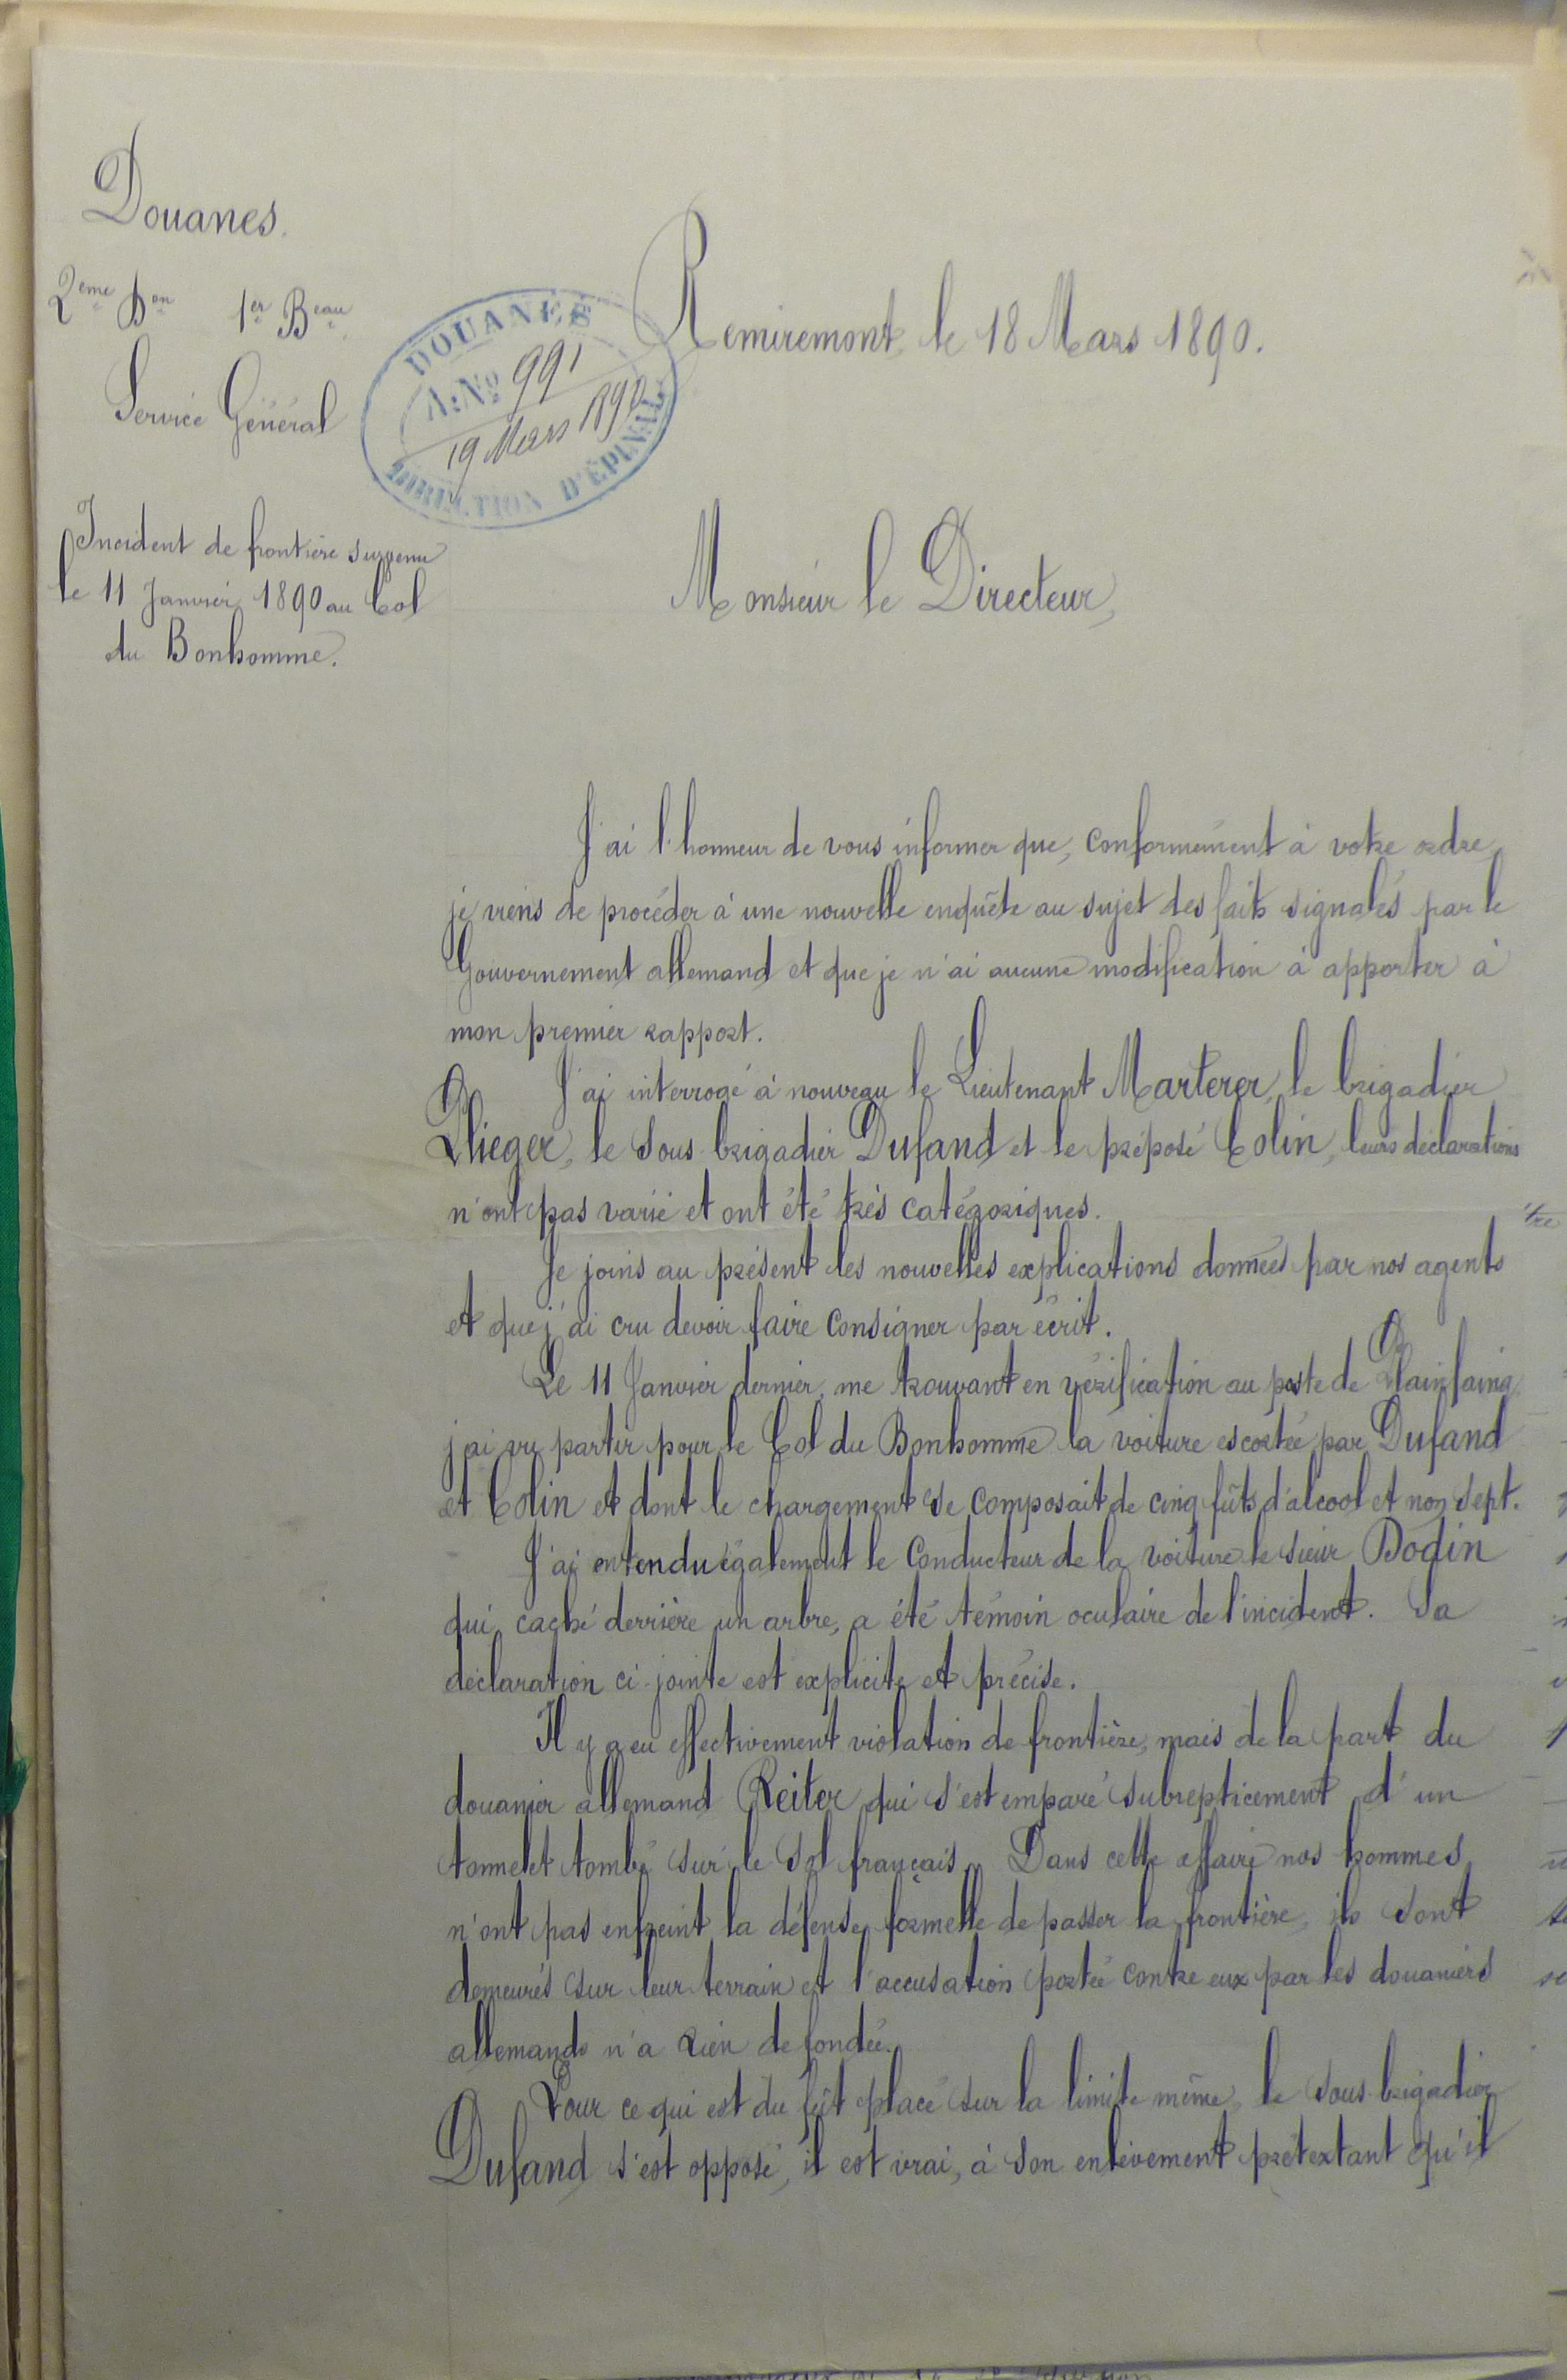 Douanes.
2ème Don 1er Beau
Service Général
DOUANES
A: No 991
19 Mars 1890
DIRECTION D'ÉPINAL
Remiremont, le 18 Mars 1890.
Incident de frontière survenu
le 11 Janvier 1890 au Col
du Bonhomme.
Monsieur le Directeur,
J'ai l'honneur de vous informer que, conformément à votre ordre,
je viens de procéder à une nouvelle enquête au sujet des faits signalés par le
Gouvernement allemand et que je n'ai aucune modification à apporter à
mon premier rapport.
J'ai interrogé à nouveau le Lieutenant Marterer, le brigadier
Plieger, le Sous-brigadier Dufand et le préposé Colin, leurs déclarations
n'ont pas varié et ont été très catégoriques.
Je joins au présent les nouvelles explications données par nos agents
et que j'ai cru devoir faire consigner par écrit.
Le 11 Janvier dernier, me trouvant en vérification au poste de Plainfaing,
j'ai vu partir pour le Col du Bonhomme la voiture escortée par Dufand
et Colin et dont le chargement se composait de cinq fûts d'alcool et non sept.
J'ai entendu également le Conducteur de la voiture le sieur Dodin
qui, caché derrière un arbre, a été témoin oculaire de l'incident. Sa
déclaration ci-jointe est explicite et précise.
Il y a eu effectivement violation de frontière, mais de la part du
douanier allemand Reiter qui s'est emparé subrepticement d'un
tonnelet tombé sur le sol français. Dans cette affaire nos hommes
n'ont pas enfreint la défense formelle de passer la frontière, ils sont
demeurés sur leur terrain et l'accusation portée contre eux par les douaniers
allemands n'a rien de fondée.
Pour ce qui est du fût placé sur la limite même, le Sous-brigadier
Dufand s'est opposé, il est vrai, à son enlèvement prétextant qu'il